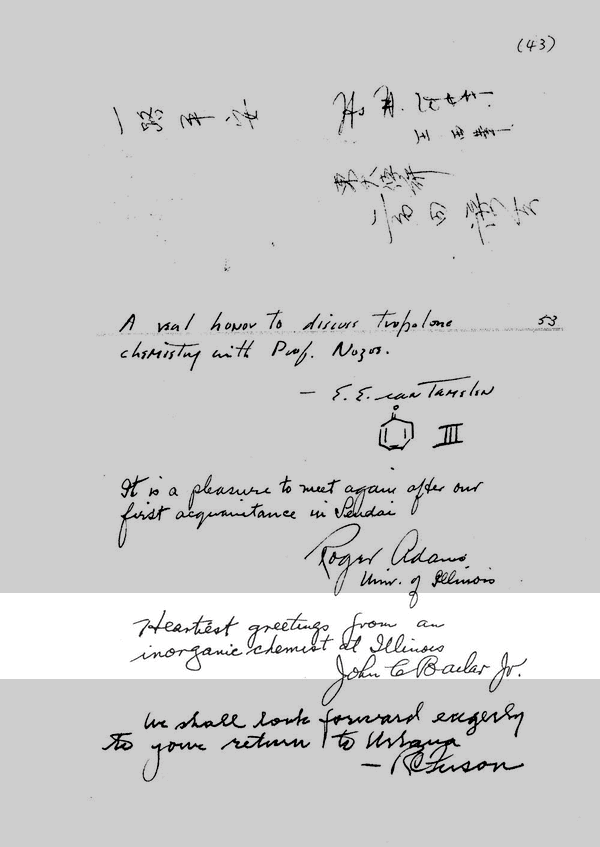 (43)
一路平安
A real honor to discuss tropolone
53
chemistry with Prof. Nozoe.
— E. E. van Tamelen
III
It is a pleasure to meet again after our
first acquaintance in Sendai
Roger Adams
Univ. of Illinois
Heartiest greetings from an
inorganic chemist at Illinois
John C Bailar Jr.
We shall look forward eagerly
to your return to Urbana
— RC Fuson